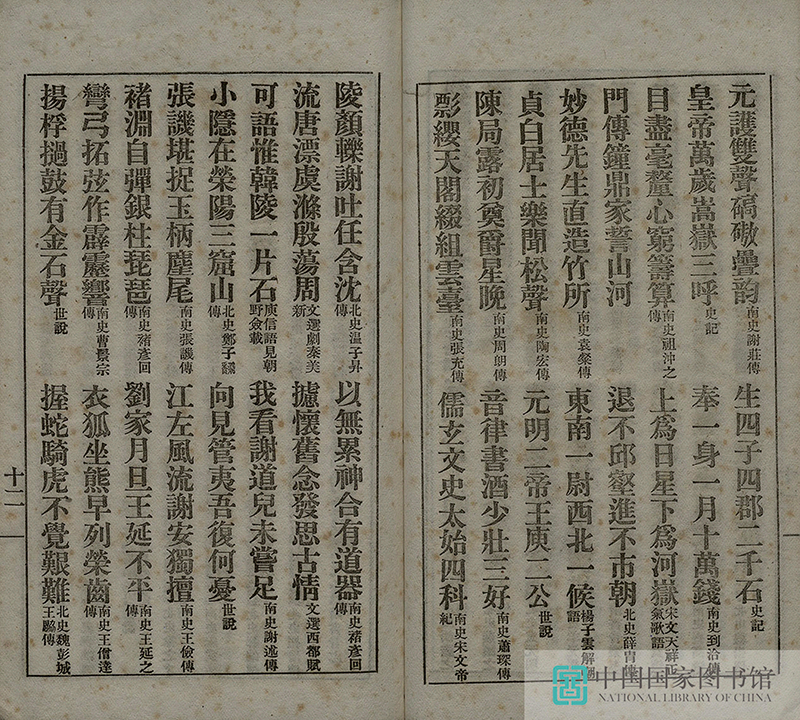 元護雙聲碻磝疊韵南史謝莊傳　生四子四郡二千石史記
皇帝萬歲嵩嶽三呼史記　奉一身一月十萬錢南史到洽傳
目盡毫釐心窮籌算南史祖沖之傳　上爲日星下爲河嶽宋文天祥正氣歌語
門傳鐘鼎家誓山河　退不邱壑進不市朝北史薛冑傳
妙德先生直造竹所南史袁粲傳　東南一尉西北一候楊子雲解嘲語
貞白居士樂聞松聲南史陶宏傳　元明二帝王庾二公世說
陳局露初奠爵星晚南史周朗傳　音律書酒少壯三好南史蕭琛傳
影纓天閣綴組雲臺南史張充傳　儒玄文史太始四科南史宋文帝紀
陵顏轢謝吐任含沈北史温子昇傳　以無累神合有道器南史褚彥回傳
流唐漂虞滌殷蕩周文選劇秦美新　攄懷舊念發思古情文選西都賦
可語惟韓陵一片石庾信語見朝野僉載　我看謝道兒未嘗足南史謝述傳
小隱在滎陽三窟山北史鄭子翻傳　向見管夷吾復何憂世說
張譏堪捉玉柄麈尾南史張譏傳　江左風流謝安獨擅南史王儉傳
褚淵自彈銀柱琵琶南史褚彥回傳　劉家月旦王延不平南史王延之傳
彎弓拓弦作霹靂響南史曹景宗傳　衣狐坐熊早列榮齒南史王僧達傳
揚桴撾鼓有金石聲世說　握蛇騎虎不覺艱難北史魏彭城王勰傳
十二
中国国家图书馆
NATIONAL LIBRARY OF CHINA